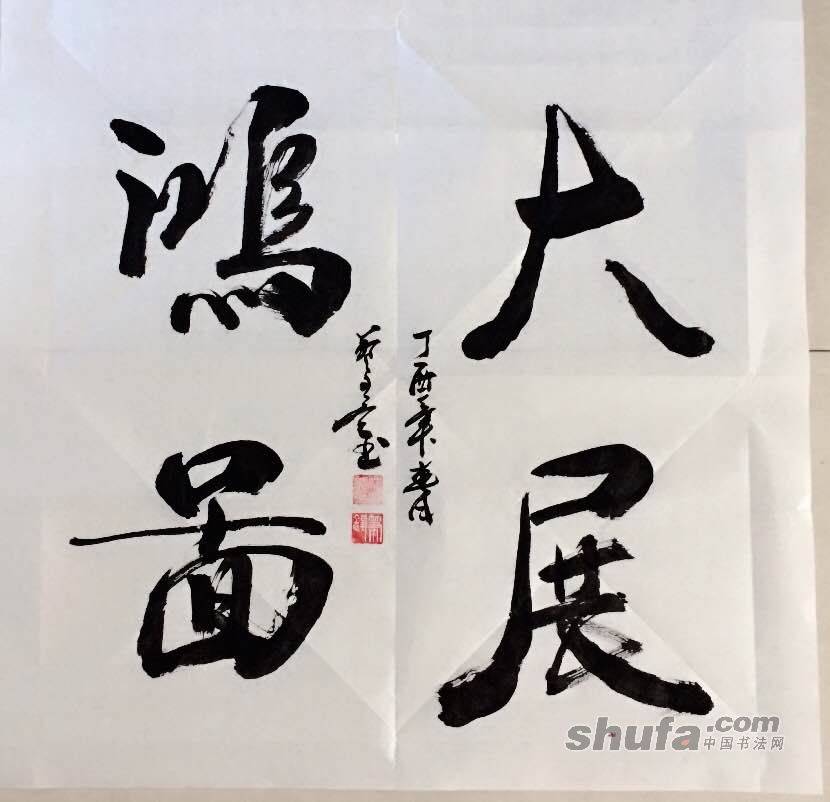 大展
鴻圖
丁酉年春月
shufa.com
中国书法网